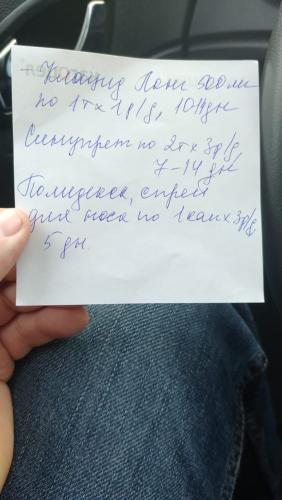 Клацид Лонг 500мг
по 1т х 1р/д, 10дн
Синупрет по 2т х 3р/д
7-14 дн
Полидекса, спрей
для носа по 1 кап х 3р/д
5 дн.